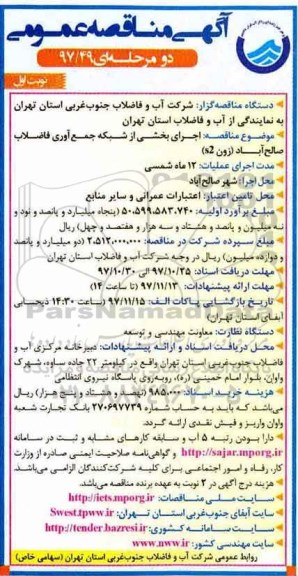 آگهی مناقصه عمومی
دو مرحله‌ای ۹۷/۴۹
نوبت اول
دستگاه مناقصه‌گزار: شرکت آب و فاضلاب جنوب‌غربی استان تهران
به نمایندگی از آب و فاضلاب استان تهران
موضوع مناقصه: اجرای بخشی از شبکه جمع‌آوری فاضلاب
صالح‌آباد (زون s2)
مدت اجرای عملیات: ۱۲ ماه شمسی
محل اجرا: شهر صالح‌آباد
محل تامین اعتبار: اعتبارات عمرانی و سایر منابع
مبلغ برآورد اولیه: ۵۰،۵۹۹،۵۸۳،۷۴۰ (پنجاه میلیارد و پانصد و نود و
نه میلیون و پانصد و هشتاد و سه هزار و هفتصد و چهل) ریال
مبلغ سپرده شرکت در مناقصه: ۲،۵۱۲،۰۰۰،۰۰۰ (دو میلیارد و پانصد
و دوازده میلیون) ریال در وجه شرکت آب و فاضلاب استان تهران
مهلت دریافت اسناد: ۹۷/۱۰/۲۵ الی ۹۷/۱۰/۳۰
مهلت ارائه پیشنهادات: ۹۷/۱۱/۱۳ (تا ساعت ۱۴)
تاریخ بازگشایی پاکات الف: ۹۷/۱۱/۱۵ (ساعت ۱۴:۳۰ ذیحسابی
آبفای استان تهران)
دستگاه نظارت: معاونت مهندسی و توسعه
محل دریافت اسناد و ارائه پیشنهادات: دبیرخانه مرکزی آب و
فاضلاب جنوب‌غربی استان تهران واقع در کیلومتر ۲۲ جاده ساوه، شهرک
واوان، بلوار امام خمینی (ره)، روبه‌روی پاسگاه نیروی انتظامی
هزینه خرید اسناد: ۹۸۵،۰۰۰ (نهصد و هشتاد و پنج هزار) ریال
می‌باشد که باید به حساب شماره ۲۷۰۶۹۷۷۳۹ بانک تجارت شعبه
واوان واریز و فیش نقدی ارائه گردد.
دارا بودن رتبه ۵ آب و سابقه کارهای مشابه و ثبت در سامانه
http://sajar.mporg.ir و گواهی‌نامه صلاحیت ایمنی صادره از وزارت
کار، رفاه و امور اجتماعی برای کلیه شرکت‌کنندگان الزامی می‌باشد.
هزینه درج آگهی در ۲ نوبت به عهده برنده مناقصه می‌باشد.
سایت ملی مناقصات: http://iets.mporg.ir
سایت آبفای جنوب‌غربی استان تهران: Swest.tpww.ir
سایت سامانه کشوری: http://tender.bazresi.ir
سایت مهندسی کشور: www.nww.ir
روابط عمومی شرکت آب و فاضلاب جنوب‌غربی استان تهران (سهامی خاص)